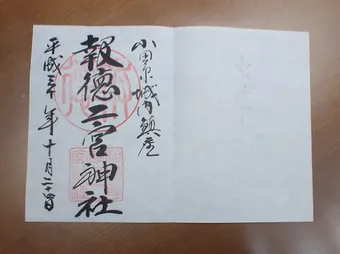 小田原城内鎮座
報徳二宮神社
平成三十年十月二十四日